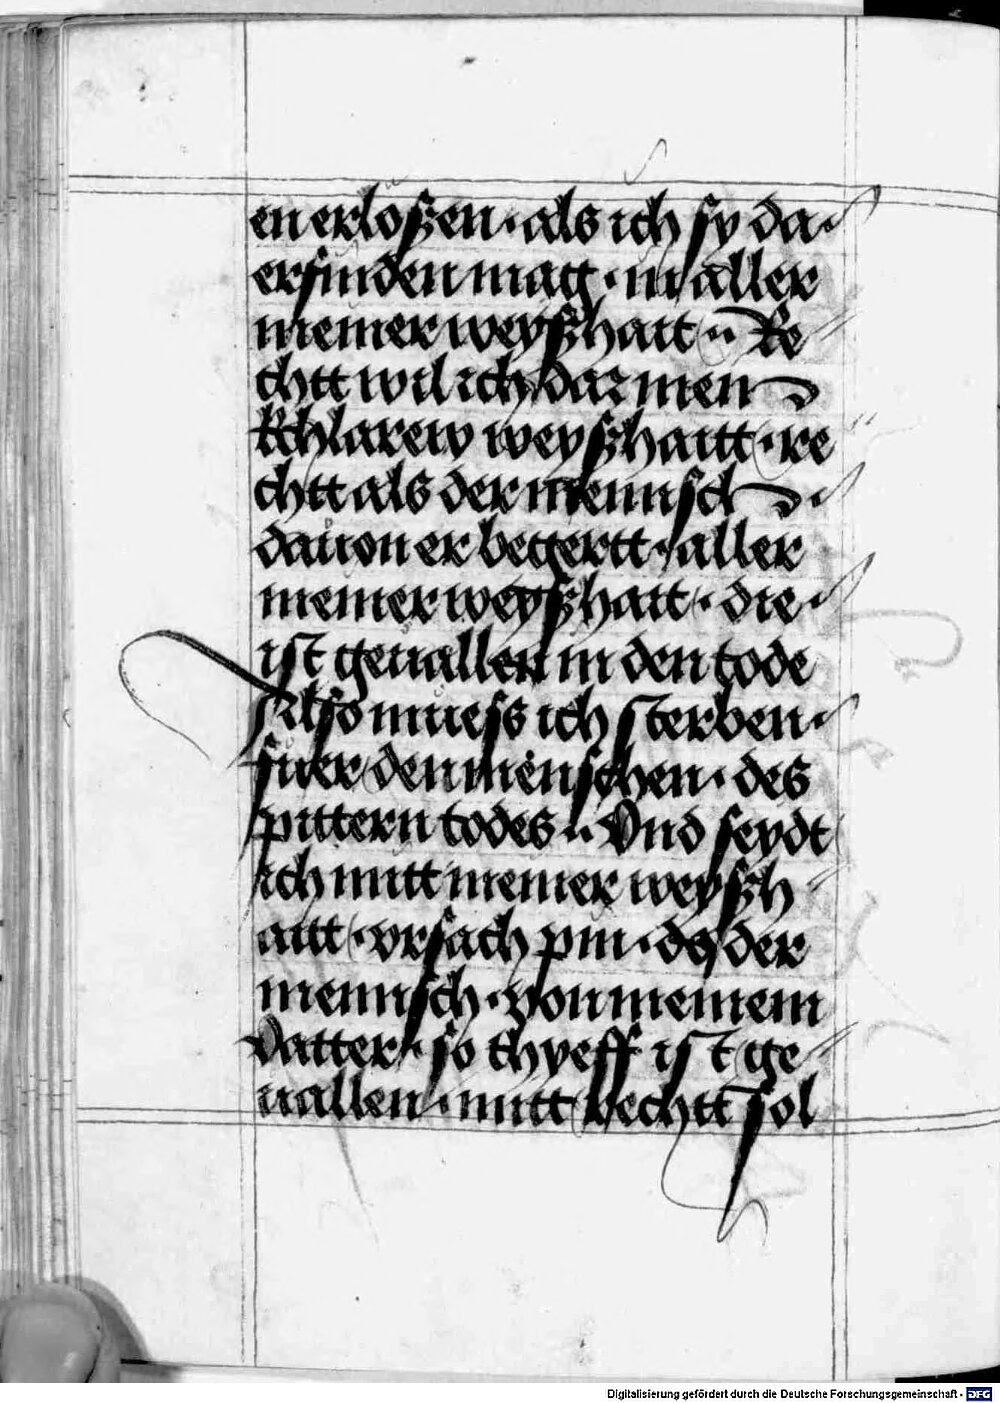 en erloßen · als ich sy da ·
erfinden mag · in aller
meiner weyßhaitt ·· Re
chtt wil ich daz men
kchlarew weyßhaitt · re
chtt als der mennsch
dauon er begertt · aller
meiner weyßhaitt · die ·
ist geuallen in den tode
Also mues ich sterben ·
fuer den menschen · des
pittern todes ·· Vnd seydt
ich mitt meiner weyßh
aitt · vrsach pin · dz der
mennsch · von meinem
Vatter · so thyeff ist ge
uallen · mitt rechtt sol
Digitalisierung gefördert durch die Deutsche Forschungsgemeinschaft · DFG